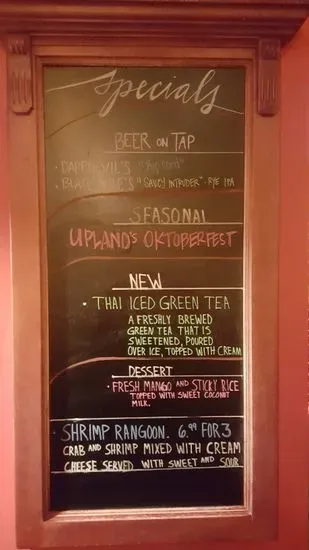 Specials
BEER ON TAP
"SAUCY INTRUDER" - RYE IPA
SEASONAL
UPLAND'S OKTOBERFEST
NEW
• THAI ICED GREEN TEA
A FRESHLY BREWED
GREEN TEA THAT IS
SWEETENED, POURED
OVER ICE, TOPPED WITH CREAM
DESSERT
• FRESH MANGO AND STICKY RICE
TOPPED WITH SWEET COCONUT
MILK.
• SHRIMP RANGOON. 6.99 FOR 3
CRAB AND SHRIMP MIXED WITH CREAM
CHEESE SERVED WITH SWEET AND SOUR